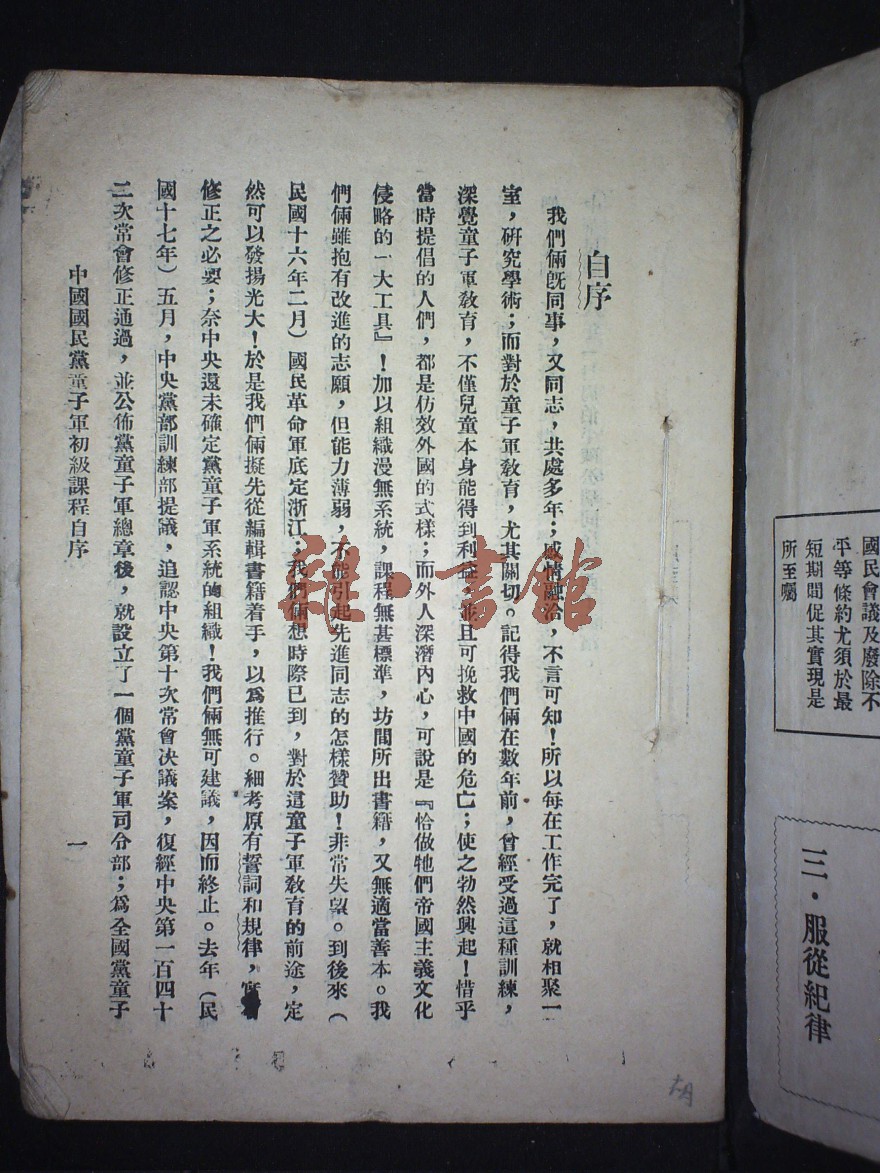 國民會議及廢除不
平等條約尤須於最
短期間促其實現是
所至囑
三·服從紀律
自序
我們倆既同事，又同志，共處多年；感情融洽，不言可知！所以每在工作完了，就相聚一
室，研究學術；而對於童子軍教育，尤其關切。記得我們倆在數年前，曾經受過這種訓練，
深覺童子軍教育，不僅兒童本身能得到利益；並且可挽救中國的危亡；使之勃然興起！惜乎
當時提倡的人們，都是仿效外國的式樣；而外人深潛內心，可說是『恰做牠們帝國主義文化
侵略的一大工具』！加以組織漫無系統，課程無甚標準，坊間所出書籍，又無適當善本。我
們倆雖抱有改進的志願，但能力薄弱，不能引起先進同志的怎樣贊助！非常失望。到後來（
民國十六年二月）國民革命軍底定浙江；我們倆想時際已到，對於這童子軍教育的前途，定
然可以發揚光大！於是我們倆擬先從編輯書籍着手，以爲推行。細考原有誓詞和規律，實
修正之必要；奈中央還未確定黨童子軍系統的組織！我們倆無可建議，因而終止。去年（民
國十七年）五月，中央黨部訓練部提議，追認中央第十次常會決議案，復經中央第一百四十
二次常會修正通過，並公佈黨童子軍總章後，就設立了一個黨童子軍司令部；爲全國黨童子
中國國民黨童子軍初級課程自序
一
雜·書館